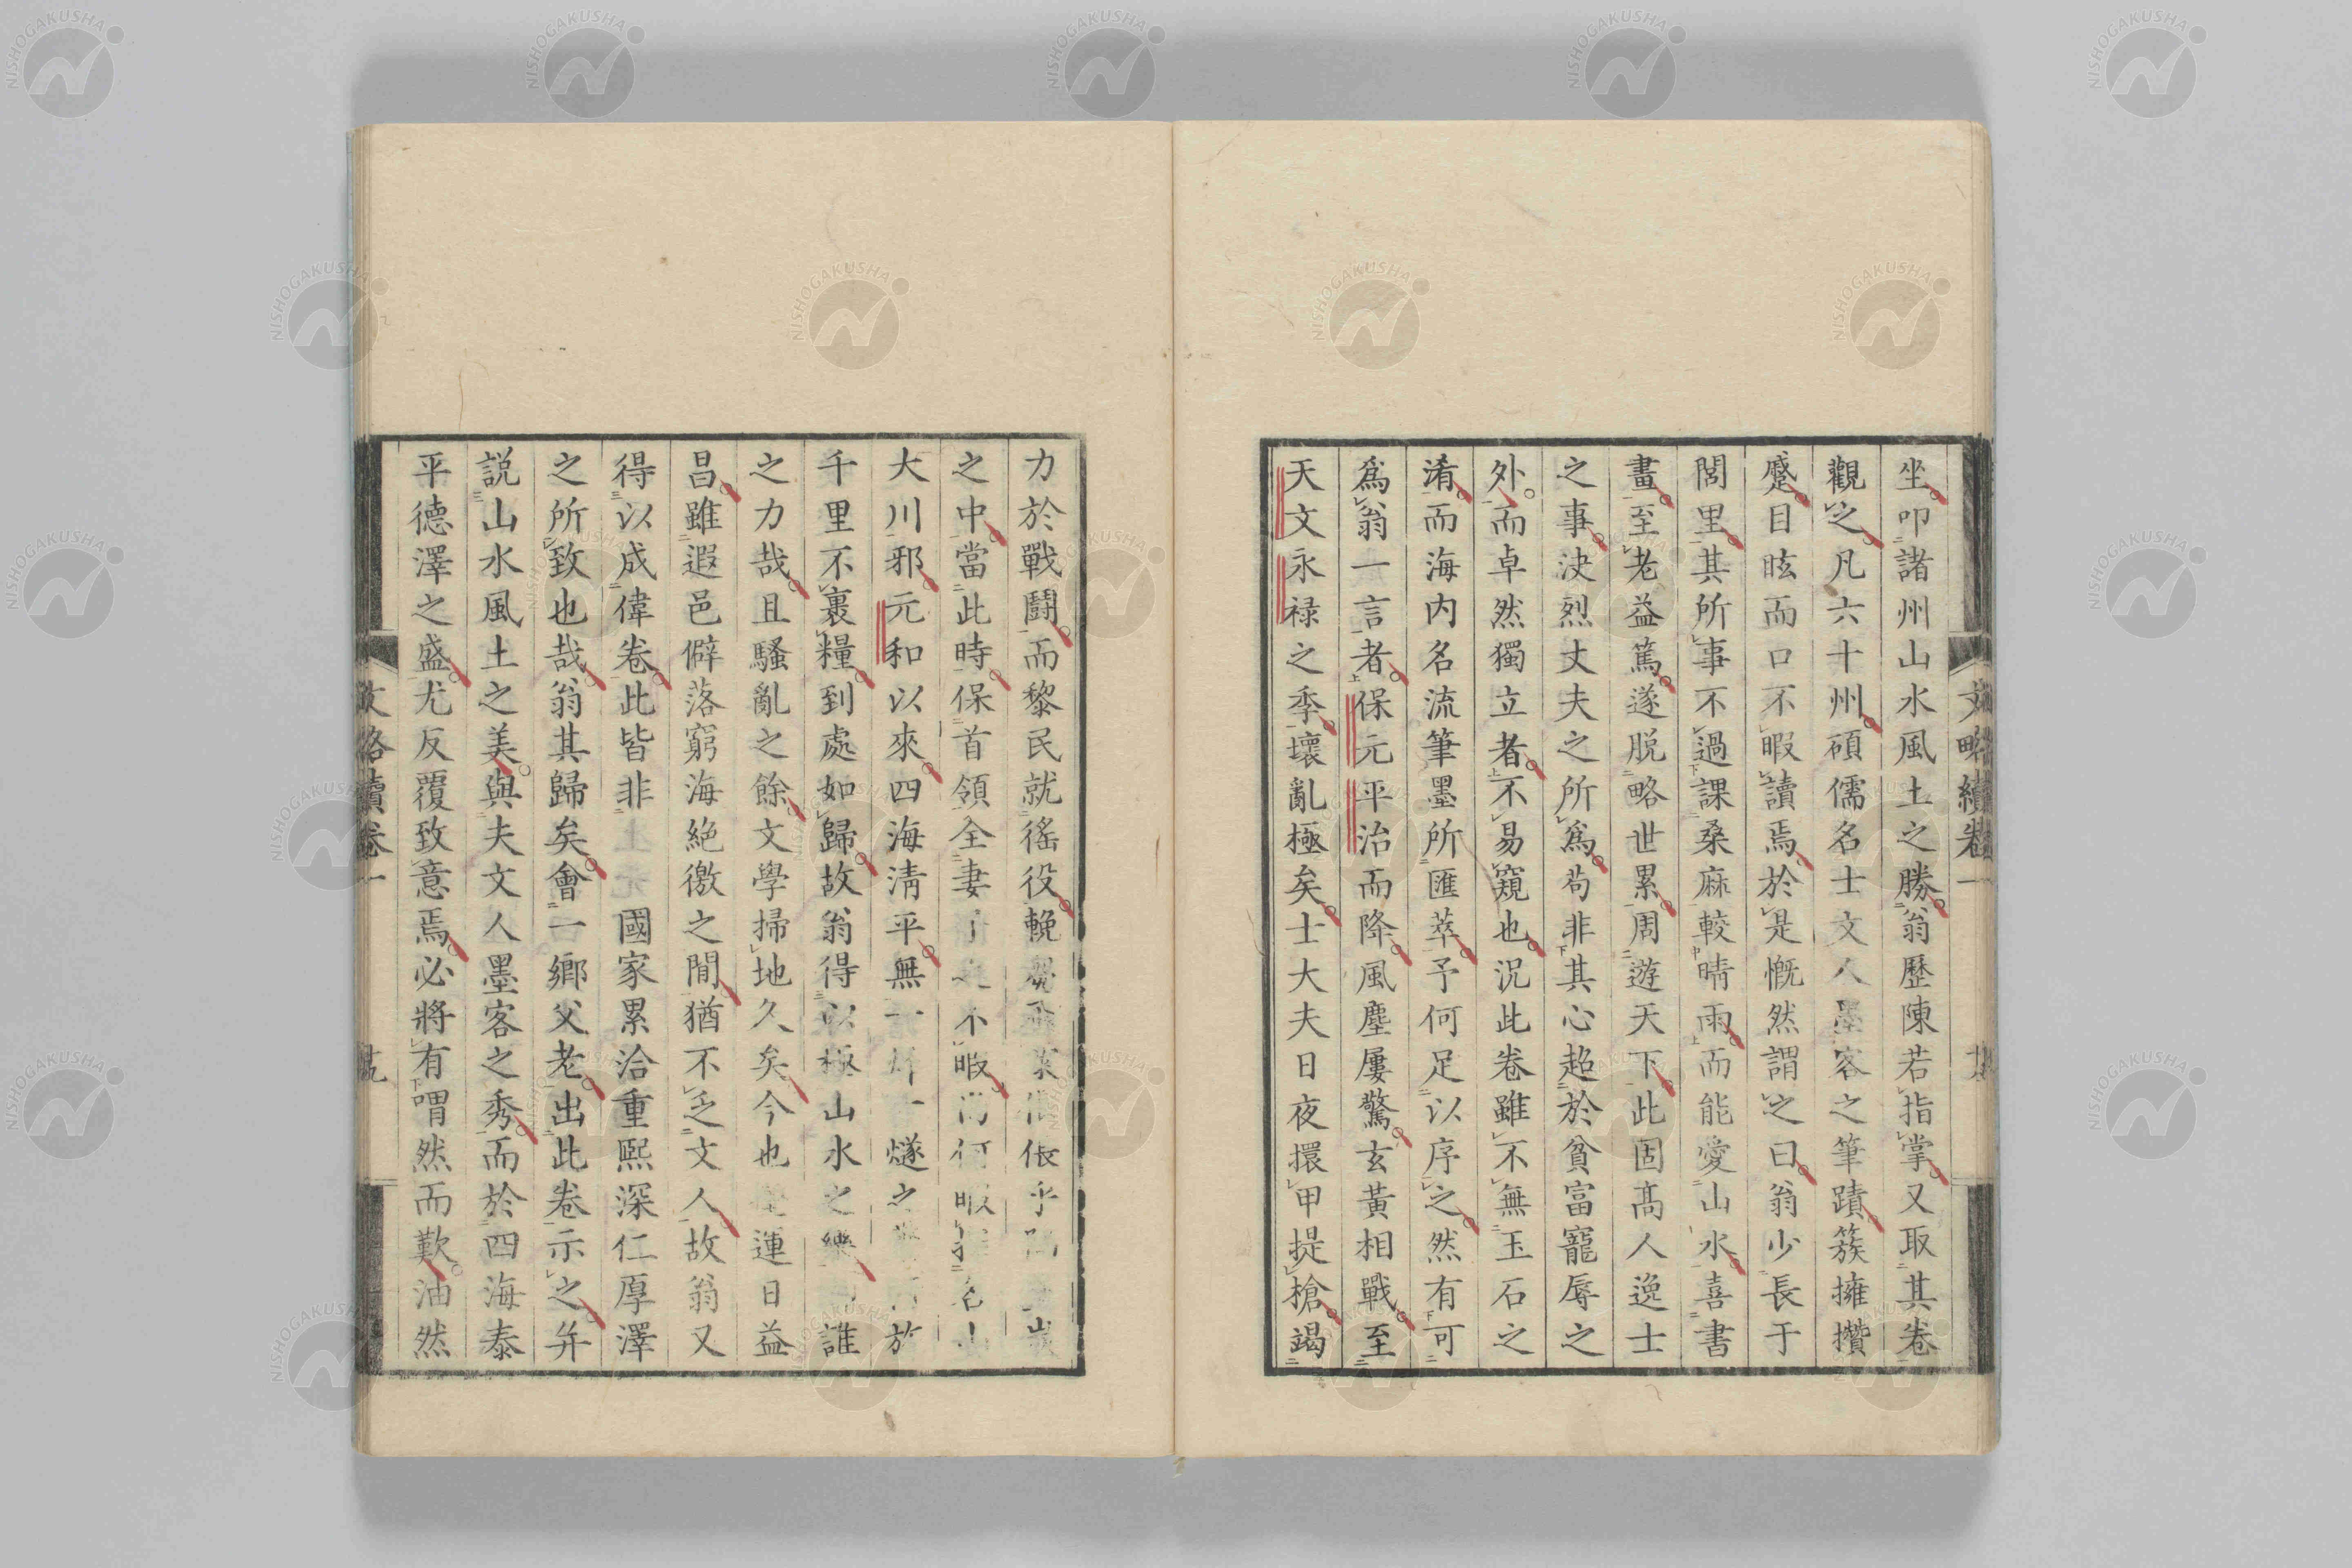 坐叩諸州山水風土之勝翁歷陳若指掌又取其卷
觀之凡六十州碩儒名士文人墨客之筆蹟簇擁攢
蹙目眩而口不暇讀焉於是慨然謂之曰翁少長于
閭里其所事不過課桑麻較晴雨而能愛山水喜書
畫至老益篤遂脱略世累周遊天下此固高人逸士
之事決烈丈夫之所爲苟非其心超於貧富寵辱之
外而卓然獨立者不易窺也況此卷雖不無玉石之
淆而海内名流筆墨所匯萃予何足以序之然有可
爲翁一言者保元平治而降風塵屢驚玄黃相戰至
天文永禄之季壞亂極矣士大夫日夜擐甲提槍竭
文略續卷一
力於戰鬪而黎民就徭役輓
之中當此時保首領全妻不暇尚何暇名山
大川邪元和以來四海淸平無一燧之於
千里不裹糧到處如歸故翁得以極山水之樂誰
之力哉且騷亂之餘文學掃地久矣今也運日益
昌雖遐邑僻落窮海絶徼之間猶不乏文人故翁又
得以成偉卷此皆非國家累洽重熙深仁厚澤
之所致也哉翁其歸矣會一鄉父老出此卷示之幷
説山水風土之美與夫文人墨客之秀而於四海泰
平德澤之盛尤反覆致意焉必將有喟然而歎油然
文略續卷一
NISHOGAKUSHA